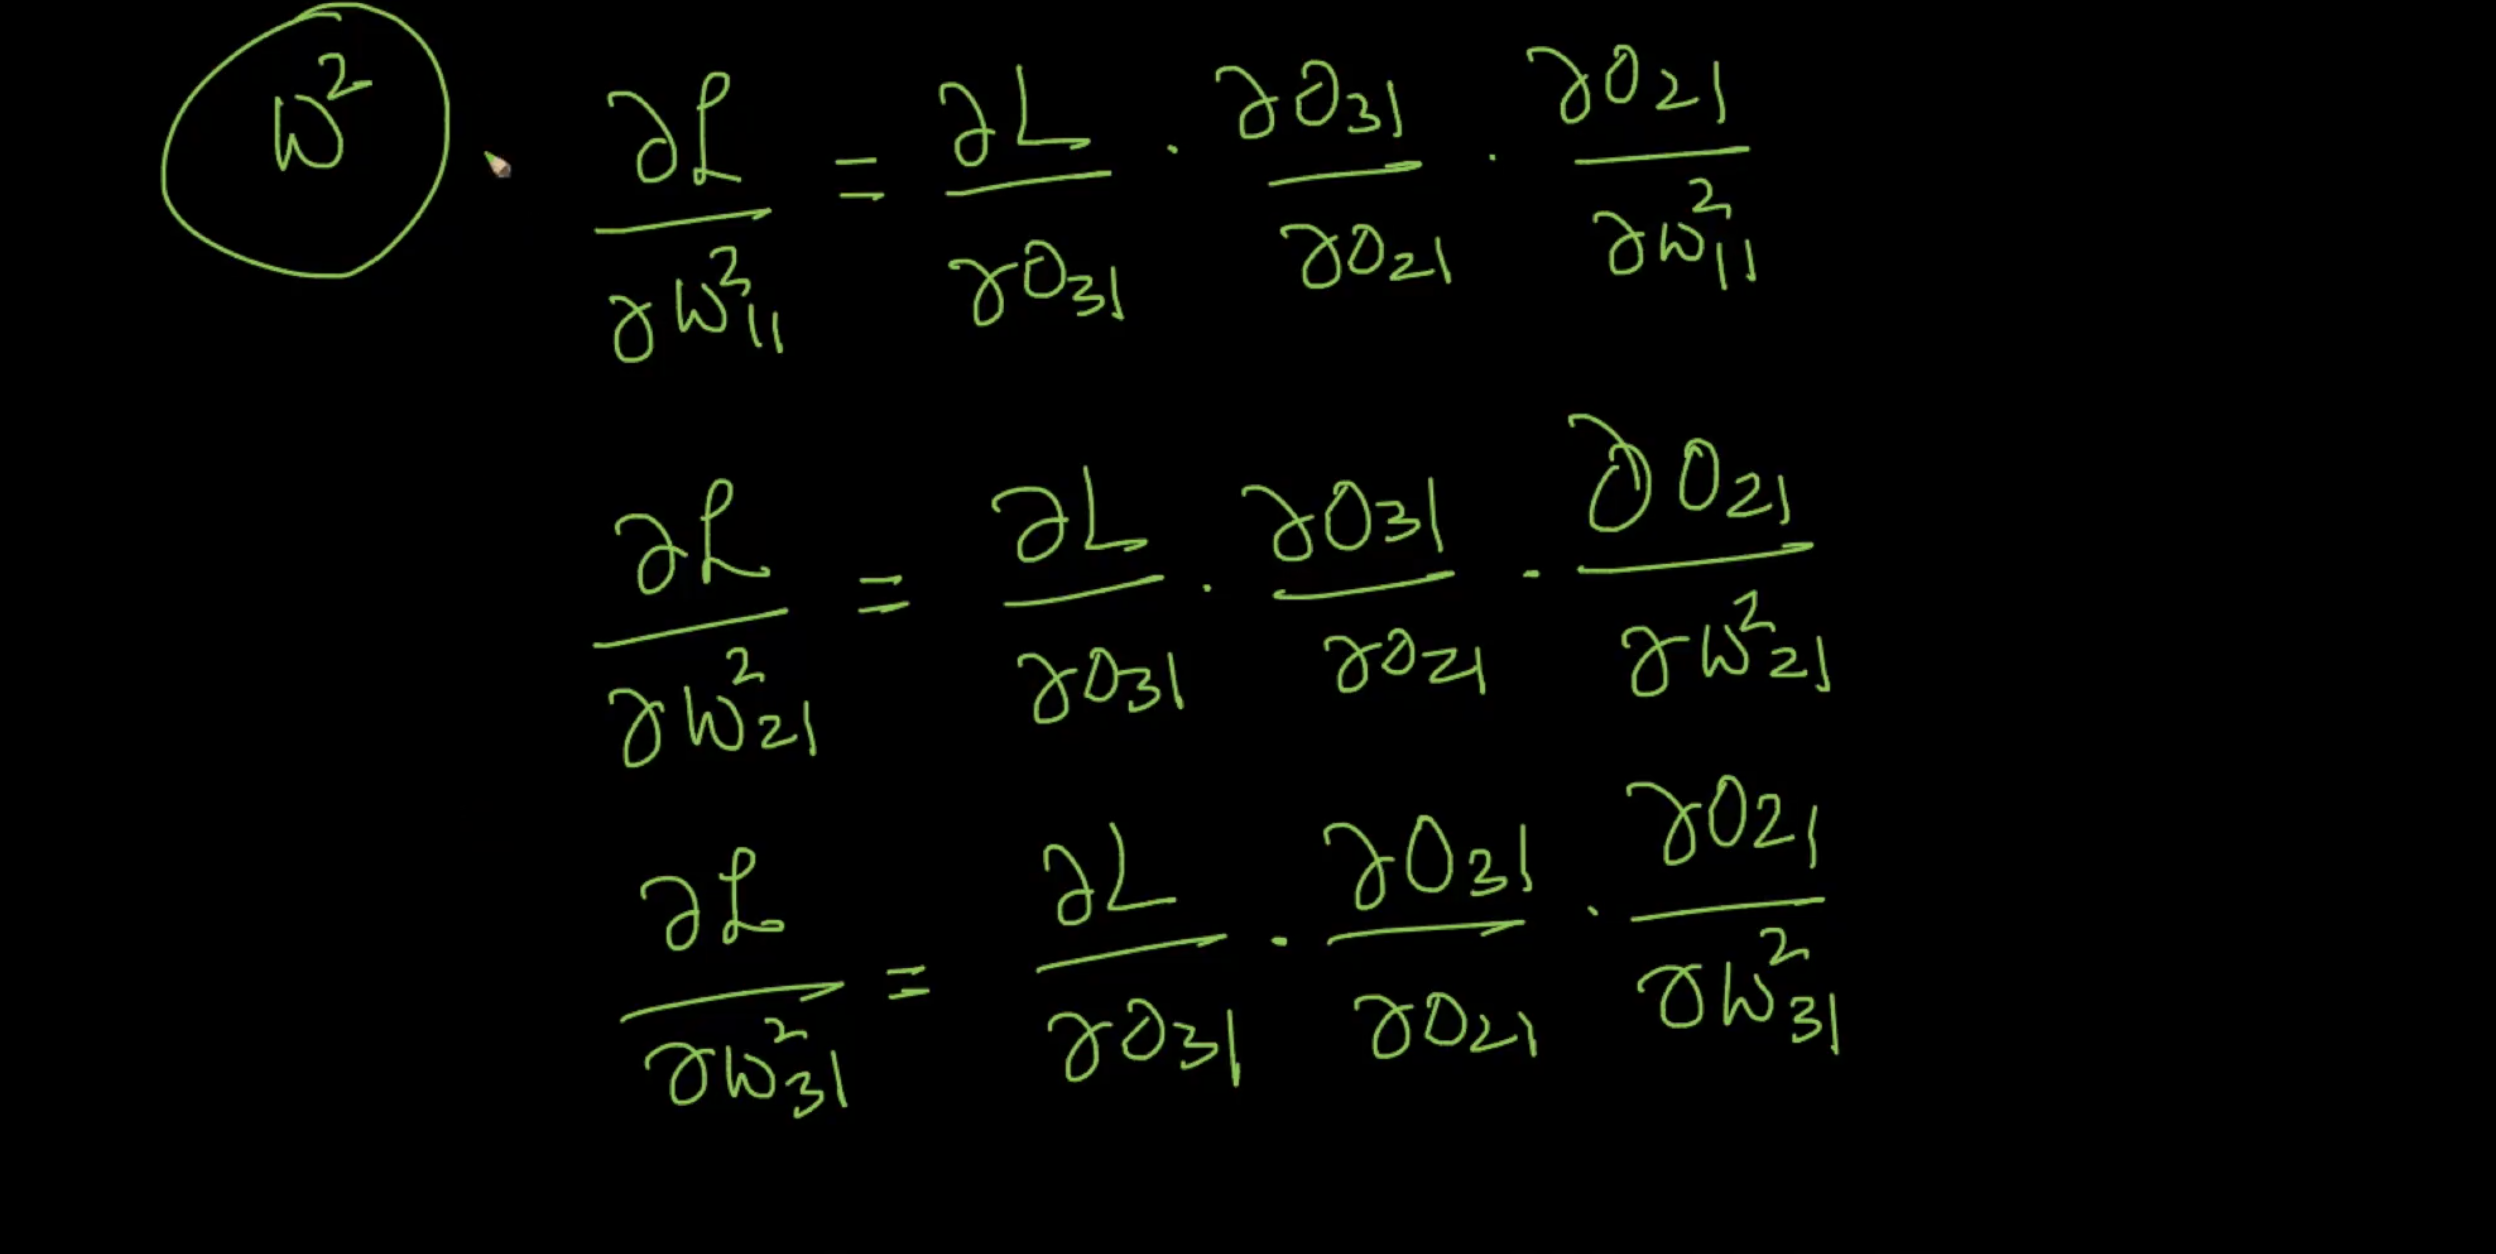 W²
∂L/∂W²₁₁ = ∂L/∂O₃₁ · ∂O₃₁/∂O₂₁ · ∂O₂₁/∂W²₁₁
∂L/∂W²₂₁ = ∂L/∂O₃₁ · ∂O₃₁/∂O₂₁ · ∂O₂₁/∂W²₂₁
∂L/∂W²₃₁ = ∂L/∂O₃₁ · ∂O₃₁/∂O₂₁ · ∂O₂₁/∂W²₃₁